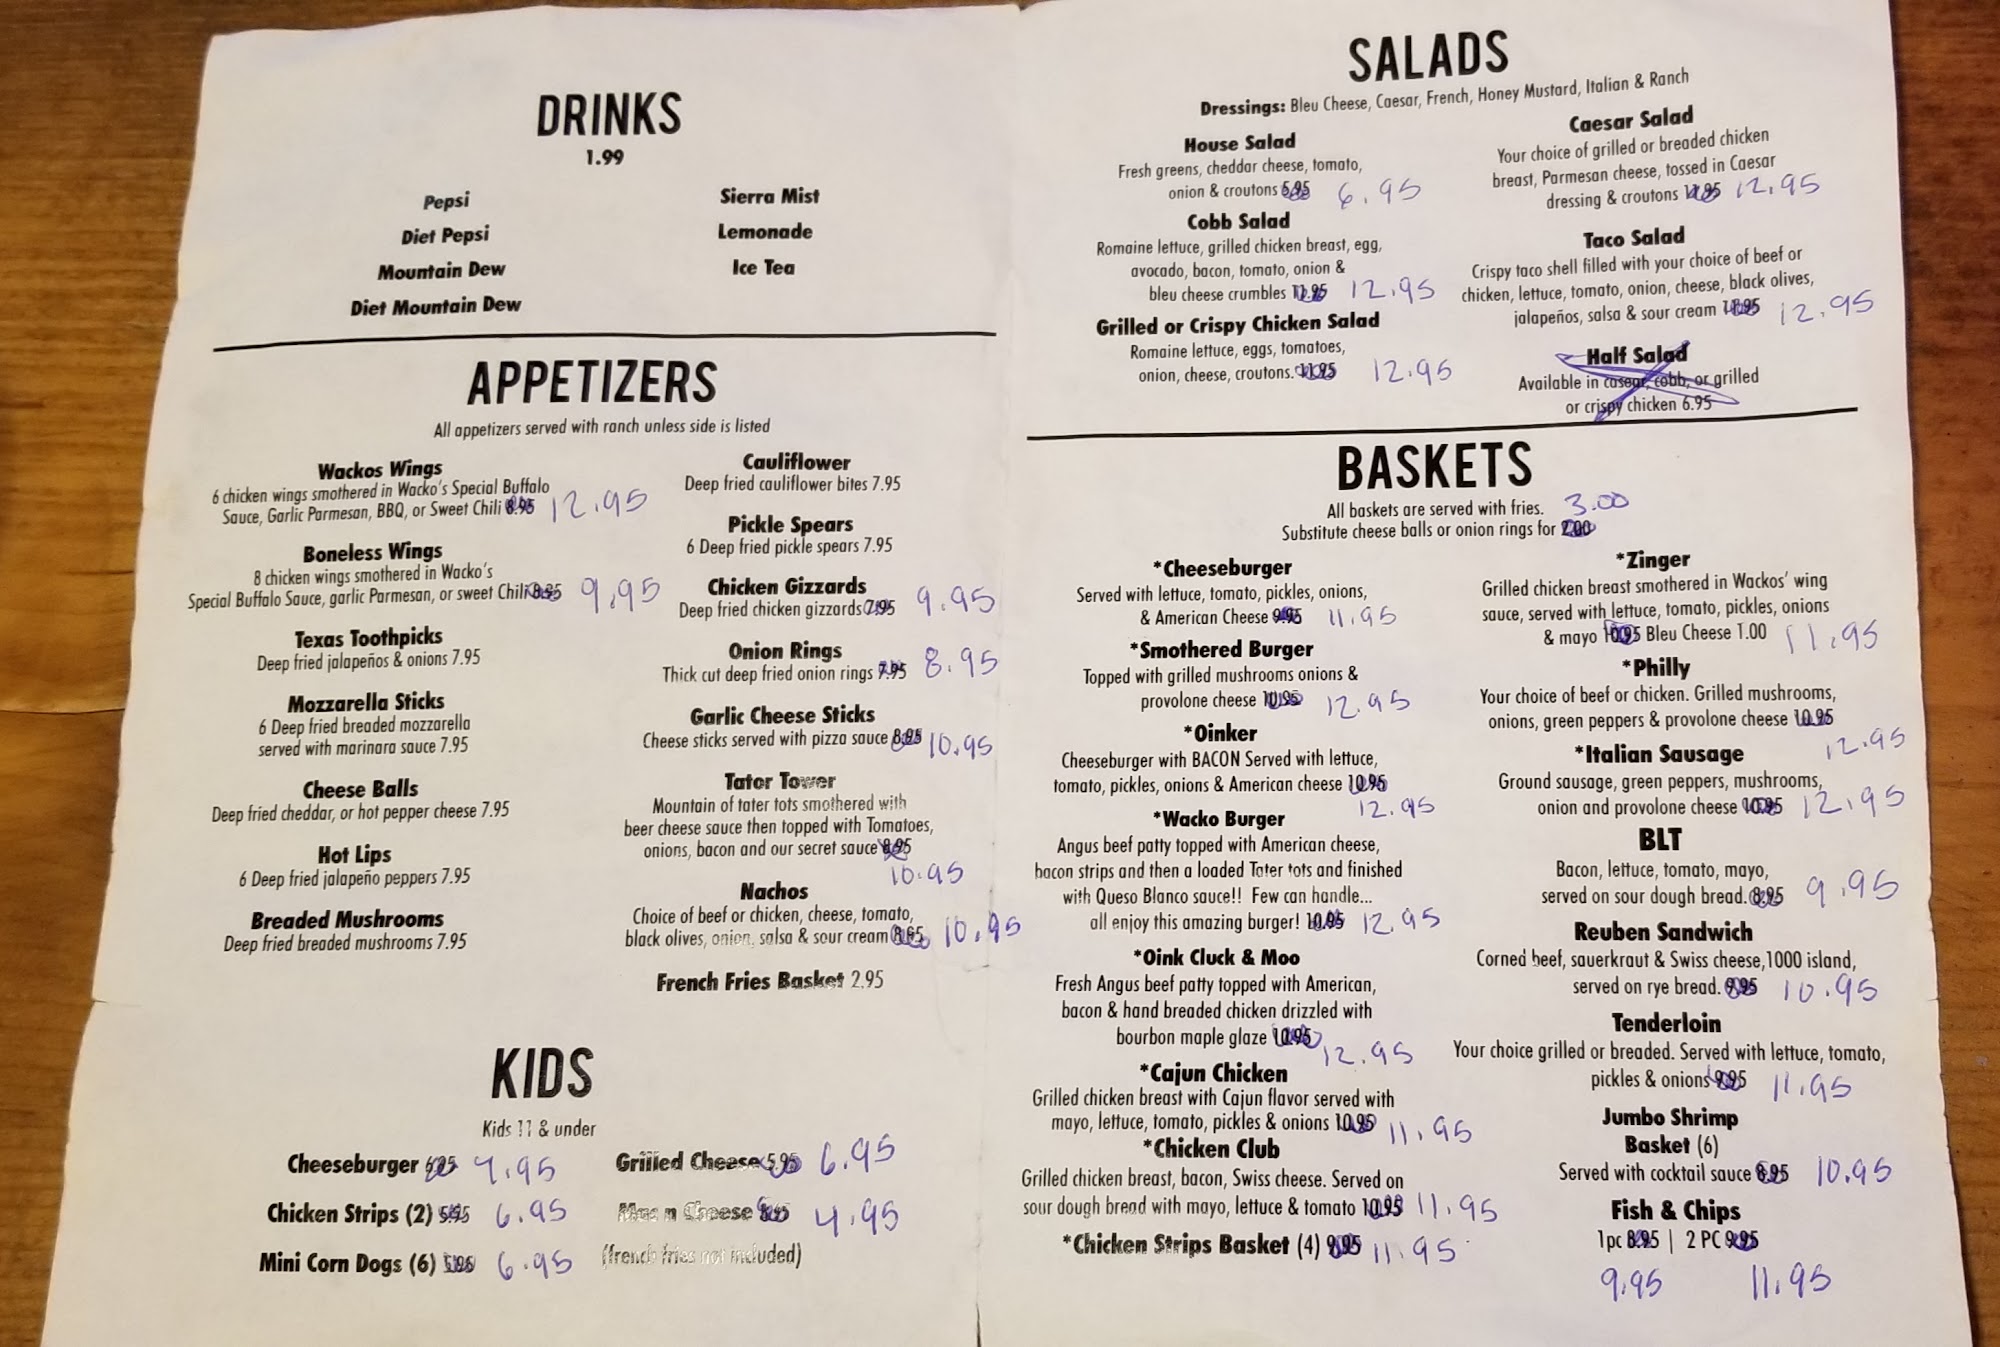 DRINKS
1.99
Pepsi
Diet Pepsi
Mountain Dew
Diet Mountain Dew
Sierra Mist
Lemonade
Ice Tea
APPETIZERS
All appetizers served with ranch unless side is listed
Wackos Wings
6 chicken wings smothered in Wacko's Special Buffalo
Sauce, Garlic Parmesan, BBQ, or Sweet Chili 8.95 12.95
Boneless Wings
8 chicken wings smothered in Wacko's
Special Buffalo Sauce, garlic Parmesan, or sweet Chili 9.95
Texas Toothpicks
Deep fried jalapeños & onions 7.95
Mozzarella Sticks
6 Deep fried breaded mozzarella
served with marinara sauce 7.95
Cheese Balls
Deep fried cheddar, or hot pepper cheese 7.95
Hot Lips
6 Deep fried jalapeño peppers 7.95
Breaded Mushrooms
Deep fried breaded mushrooms 7.95
Cauliflower
Deep fried cauliflower bites 7.95
Pickle Spears
6 Deep fried pickle spears 7.95
Chicken Gizzards
Deep fried chicken gizzards 7.95 9.95
Onion Rings
Thick cut deep fried onion rings 7.95 8.95
Garlic Cheese Sticks
Cheese sticks served with pizza sauce 8.95 10.95
Tator Tower
Mountain of tater tots smothered with
beer cheese sauce then topped with Tomatoes,
onions, bacon and our secret sauce 8.95
10.95
Nachos
Choice of beef or chicken, cheese, tomato,
black olives, onion, salsa & sour cream 8.95 10.95
French Fries Basket 2.95
KIDS
Kids 11 & under
Cheeseburger 7.95
Chicken Strips (2) 5.95 6.95
Mini Corn Dogs (6) 5.95 6.95
Grilled Cheese 5.95 6.95
Mac n Cheese 4.95
(french fries not included)
SALADS
Dressings: Bleu Cheese, Caesar, French, Honey Mustard, Italian & Ranch
House Salad
Fresh greens, cheddar cheese, tomato,
onion & croutons 5.95 6.95
Cobb Salad
Romaine lettuce, grilled chicken breast, egg,
avocado, bacon, tomato, onion &
bleu cheese crumbles 11.95 12.95
Grilled or Crispy Chicken Salad
Romaine lettuce, eggs, tomatoes,
onion, cheese, croutons. 11.95 12.95
Caesar Salad
Your choice of grilled or breaded chicken
breast, Parmesan cheese, tossed in Caesar
dressing & croutons 11.95 12.95
Taco Salad
Crispy taco shell filled with your choice of beef or
chicken, lettuce, tomato, onion, cheese, black olives,
jalapeños, salsa & sour cream 11.95 12.95
Half Salad
Available in casear, cobb, or grilled
or crispy chicken 6.95
BASKETS
All baskets are served with fries. 3.00
Substitute cheese balls or onion rings for 2.00
*Cheeseburger
Served with lettuce, tomato, pickles, onions,
& American Cheese 9.95 11.95
*Smothered Burger
Topped with grilled mushrooms onions &
provolone cheese 10.95 12.95
*Oinker
Cheeseburger with BACON Served with lettuce,
tomato, pickles, onions & American cheese 10.95
12.95
*Wacko Burger
Angus beef patty topped with American cheese,
bacon strips and then a loaded Tater tots and finished
with Queso Blanco sauce!! Few can handle...
all enjoy this amazing burger! 10.95 12.95
*Oink Cluck & Moo
Fresh Angus beef patty topped with American,
bacon & hand breaded chicken drizzled with
bourbon maple glaze 10.95 12.95
*Cajun Chicken
Grilled chicken breast with Cajun flavor served with
mayo, lettuce, tomato, pickles & onions 10.95 11.95
*Chicken Club
Grilled chicken breast, bacon, Swiss cheese. Served on
sour dough bread with mayo, lettuce & tomato 10.95 11.95
*Chicken Strips Basket (4) 9.95 11.95
*Zinger
Grilled chicken breast smothered in Wackos' wing
sauce, served with lettuce, tomato, pickles, onions
& mayo 10.95 Bleu Cheese 1.00 11.95
*Philly
Your choice of beef or chicken. Grilled mushrooms,
onions, green peppers & provolone cheese 10.95
12.95
*Italian Sausage
Ground sausage, green peppers, mushrooms,
onion and provolone cheese 10.95 12.95
BLT
Bacon, lettuce, tomato, mayo,
served on sour dough bread. 8.95 9.95
Reuben Sandwich
Corned beef, sauerkraut & Swiss cheese,1000 island,
served on rye bread. 9.95 10.95
Tenderloin
Your choice grilled or breaded. Served with lettuce, tomato,
pickles & onions 9.95 11.95
Jumbo Shrimp
Basket (6)
Served with cocktail sauce 8.95 10.95
Fish & Chips
1pc 8.95 | 2 PC 9.95
9.95 11.95